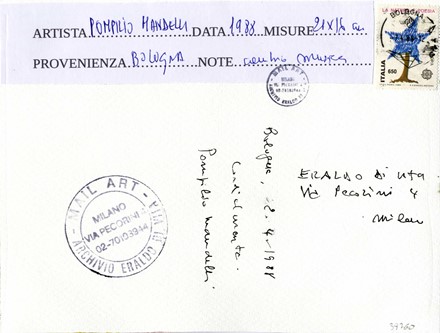 ARTISTA POMPILIO MANDELLI DATA 1988 MISURE 21x15 cm
PROVENIENZA BOLOGNA NOTE
ITALIA 650
BOLOGNA
MAIL ART
MILANO
Bologna, 2-4-1988
Cordialmente
Pompilio Mandelli
ERALDO DI VITA
Via Pecorini 4
Milano
MAIL ART - ARCHIVIO ERALDO DI VITA
MILANO
VIA PECORINI 4
02-70103914